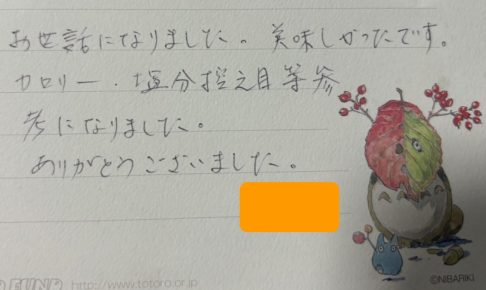 お世話になりました。美味しかったです。
カロリー・塩分控え目等参
考になりました。
ありがとうございました。
http://www.totoro.or.jp
©NIBARIKI